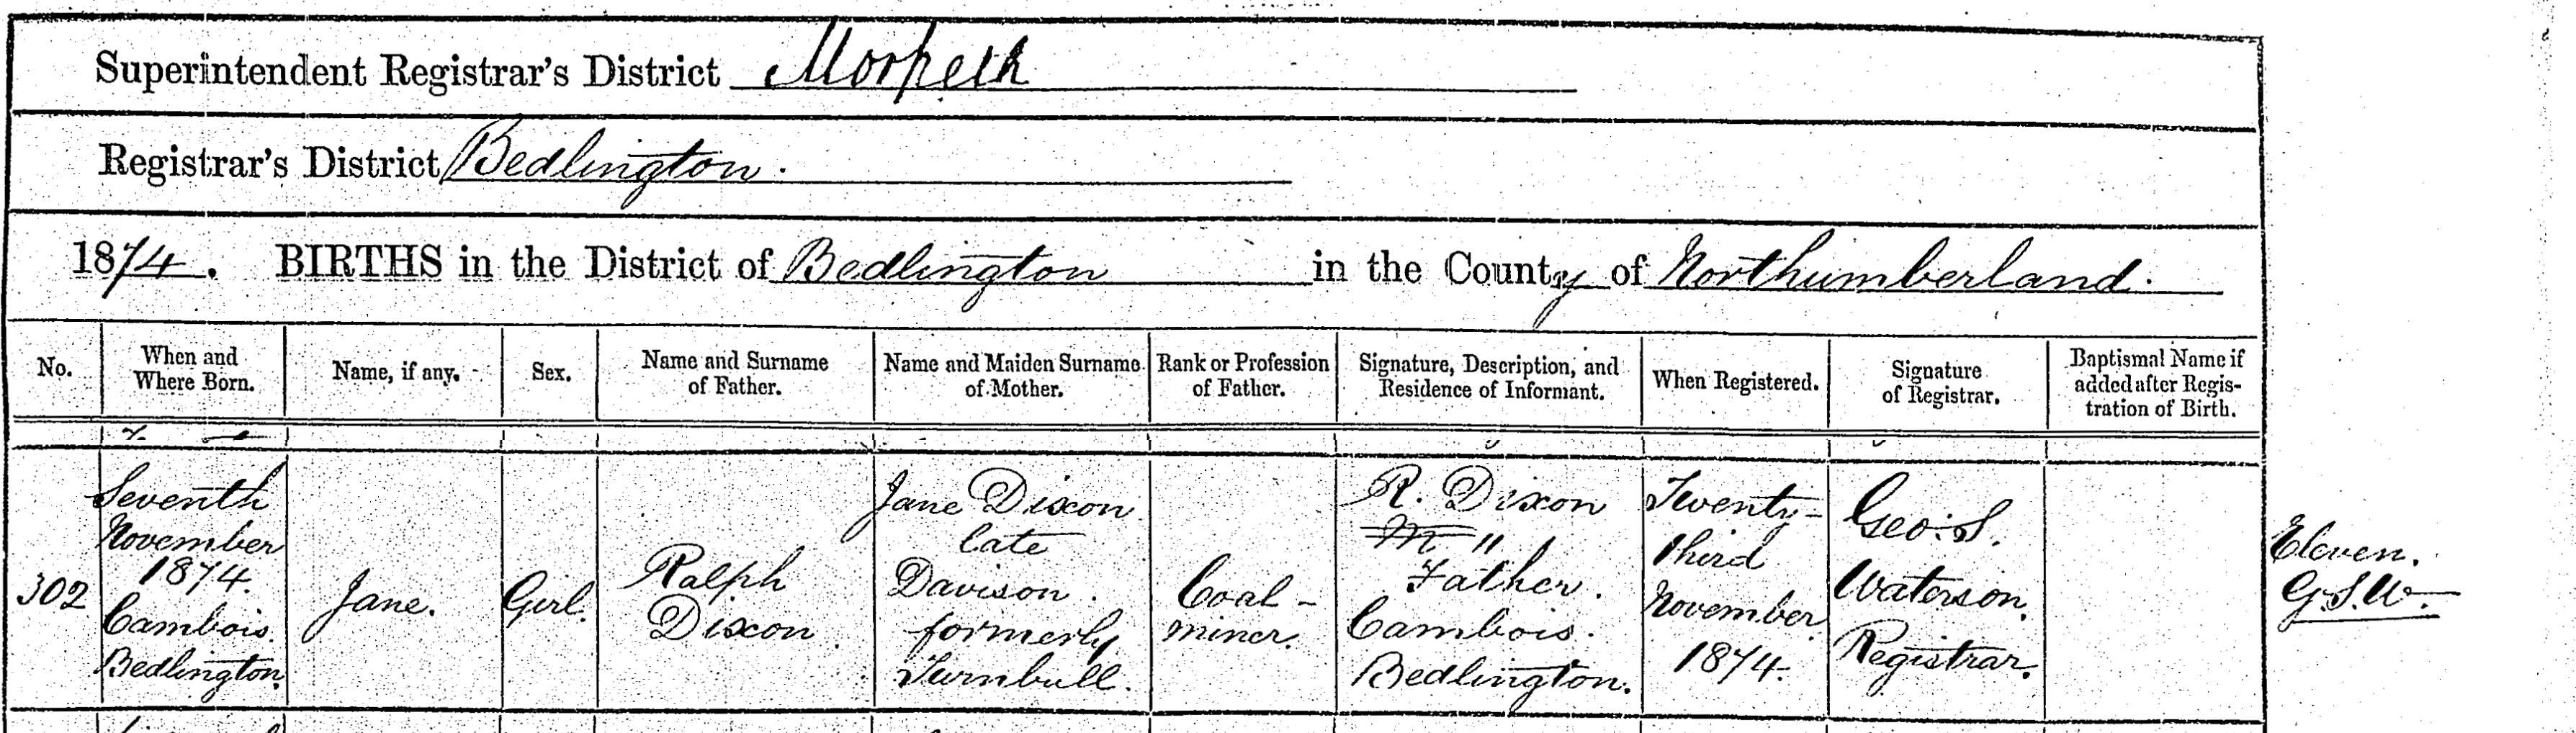 Superintendent Registrar's District Morpeth
Registrar's District Bedlington.
1874. BIRTHS in the District of Bedlington in the County of Northumberland.
No.
When and
Where Born.
Name, if any.
Sex.
Name and Surname
of Father.
Name and Maiden Surname
of Mother.
Rank or Profession
of Father.
Signature, Description, and
Residence of Informant.
When Registered.
Signature
of Registrar.
Baptismal Name if
added after Regis-
tration of Birth.
302
Seventh
November
1874.
Cambois.
Bedlington.
Jane.
Girl.
Ralph
Dixon
Jane Dixon
late
Davison.
formerly
Turnbull.
Coal-
miner.
R. Dixon
"
Father.
Cambois.
Bedlington.
Twenty-
third
November
1874.
Geo. S.
Waterson.
Registrar.
Eleven.
G.S.W.